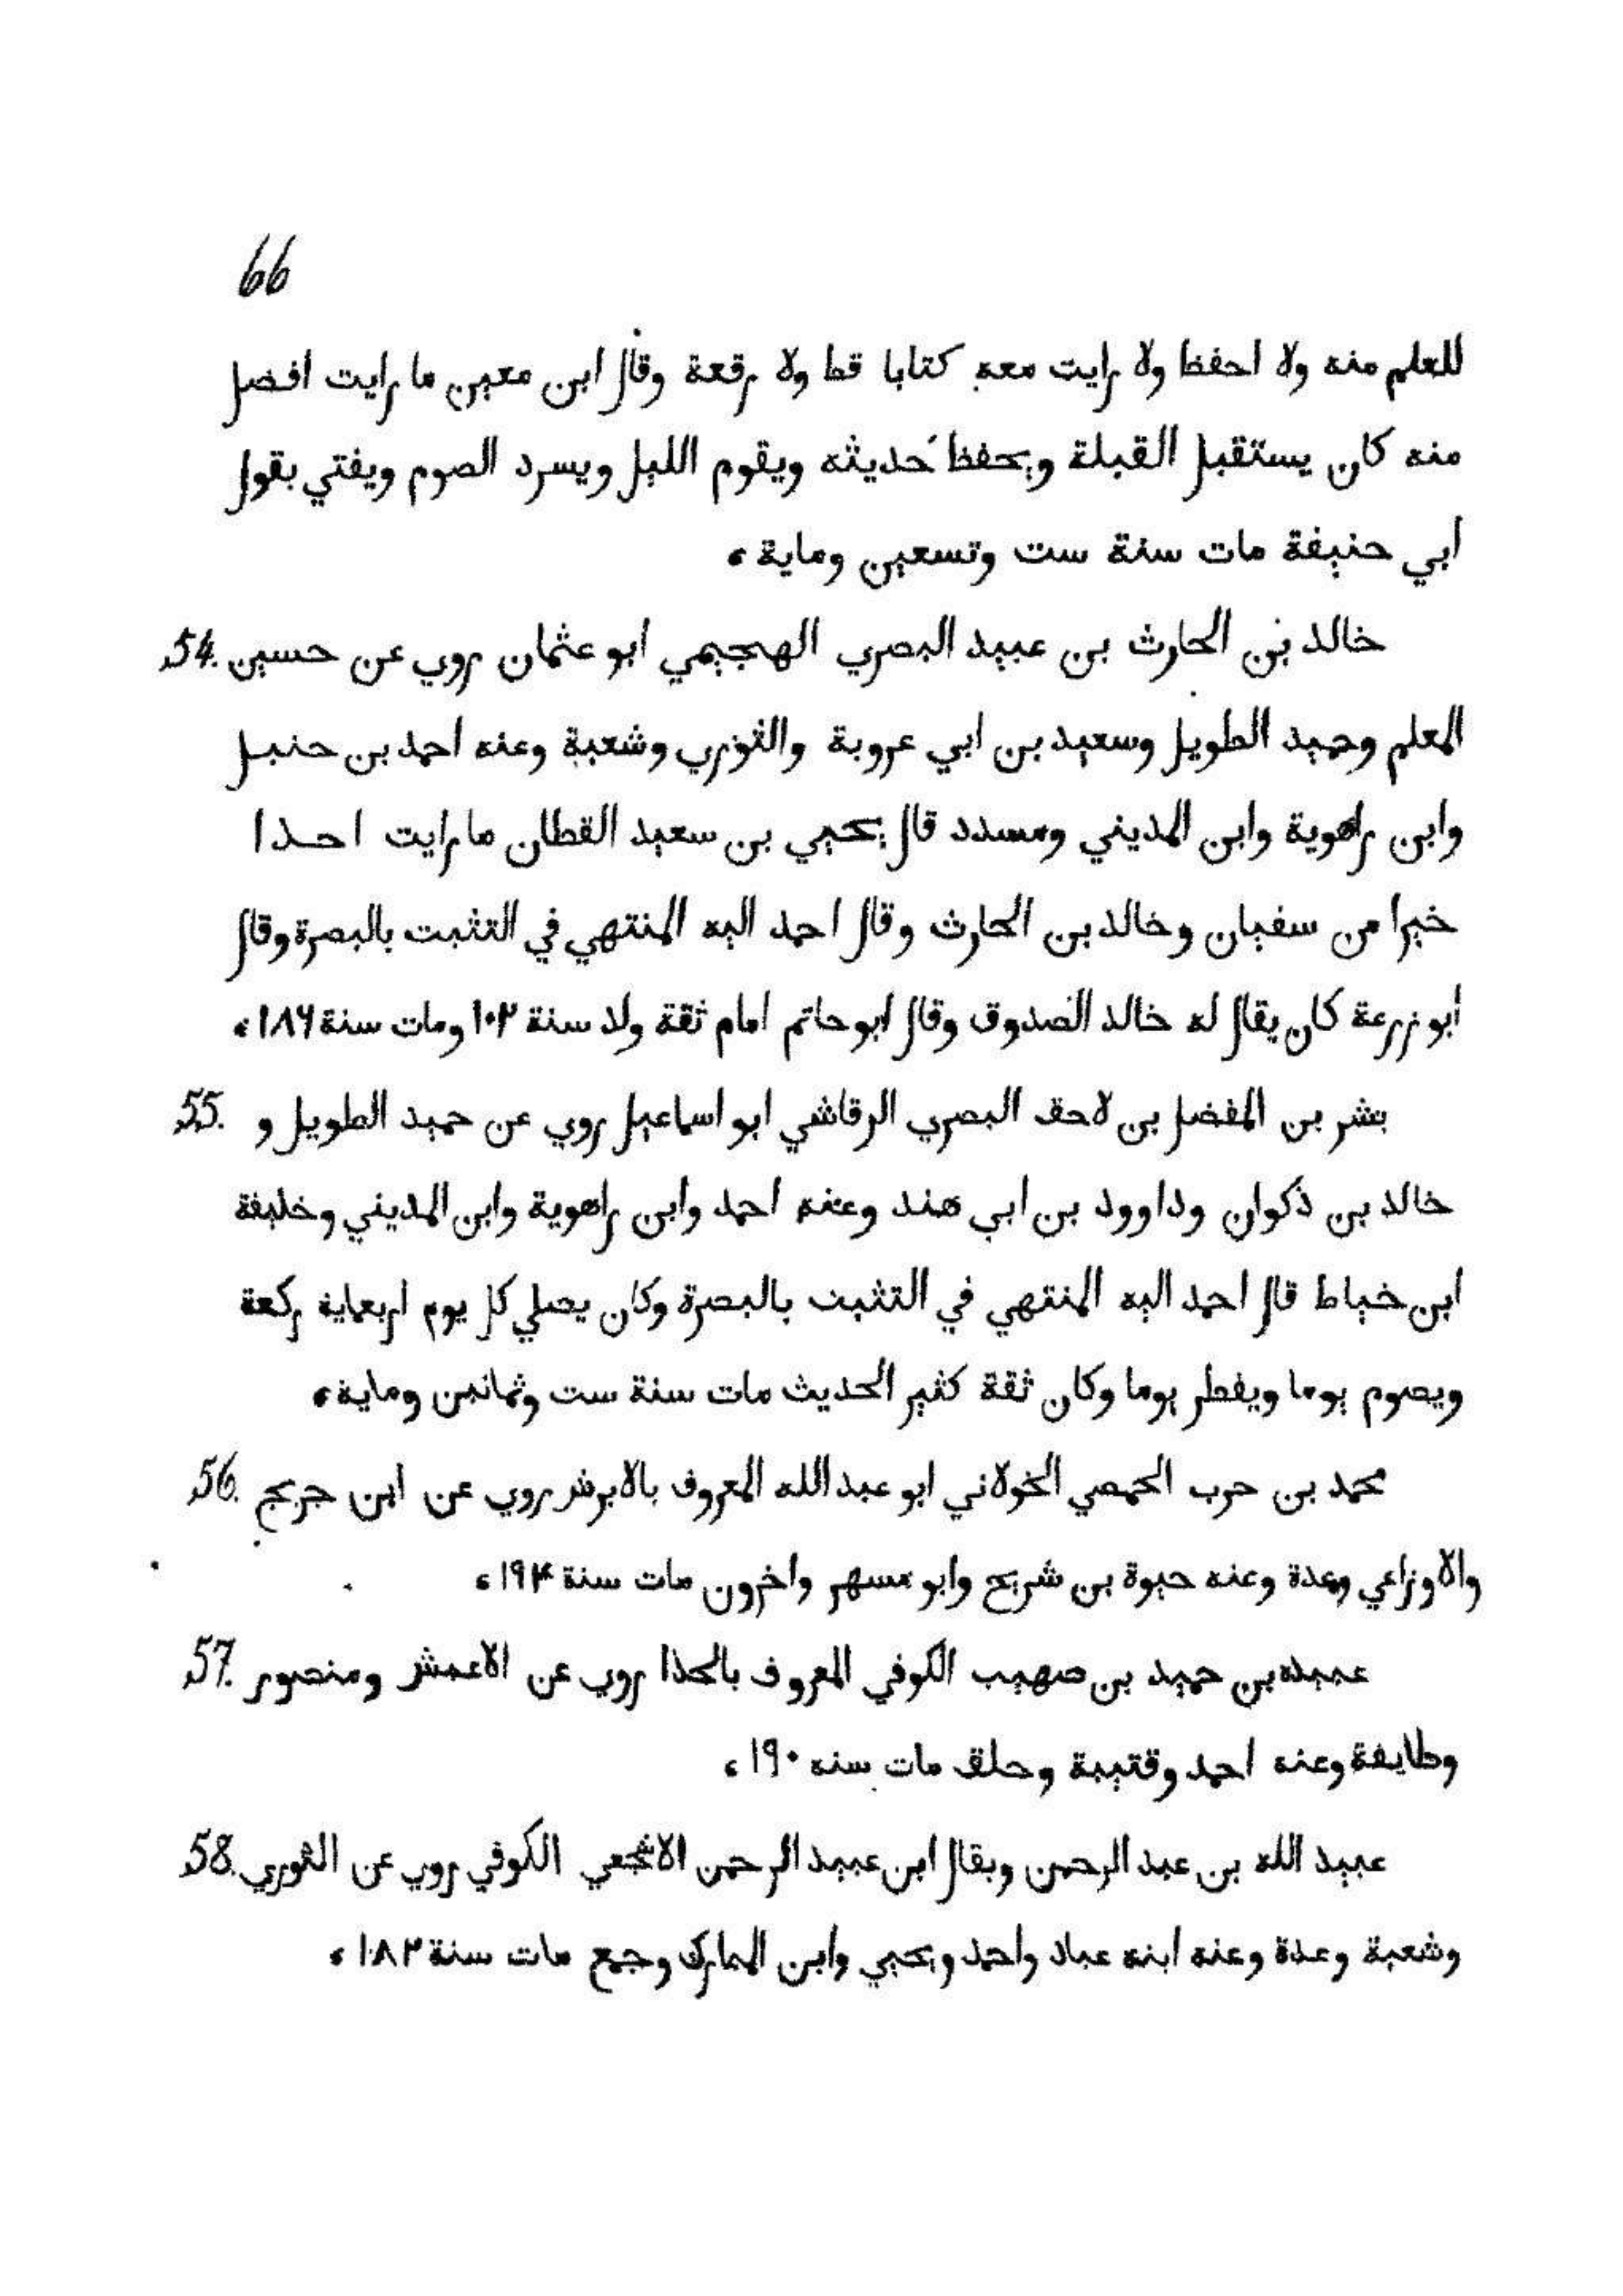 66
للعلم منه ولا احفظ ولا رايت معه كتابا قط ولا رقعة وقال ابن معين ما رايت افضل
منه كان يستقبل القبلة ويحفظ حديثه ويقوم الليل ويسرد الصوم ويفتي بقول
ابي حنيفة مات سنة ست وتسعين وماية،
خالد بن الحارث بن عبيد البصري الهجيمي ابو عثمان روي عن حسين 54.
المعلم وحميد الطويل وسعيد بن ابي عروبة والثوري وشعبة وعنه احمد بن حنبل
وابن راهوية وابن المديني ومسدد قال يحيي بن سعيد القطان ما رايت احدا
خيرا من سفيان وخالد بن الحارث وقال احمد اليه المنتهي في التثبت بالبصرة وقال
ابو زرعة كان يقال له خالد الصدوق وقال ابو حاتم امام ثقة ولد سنة ١٠٢ ومات سنة ١٨٦،
بشر بن المفضل بن لاحق البصري الرقاشي ابو اسماعيل روي عن حميد الطويل و 55.
خالد بن ذكوان وداوود بن ابي هند وعنه احمد وابن راهوية وابن المديني وخليفة
ابن خياط قال احمد اليه المنتهي في التثبت بالبصرة وكان يصلي كل يوم اربعماية ركعة
ويصوم يوما ويفطر يوما وكان ثقة كثير الحديث مات سنة ست وثمانين وماية،
محمد بن حرب الحمصي الخولاني ابو عبد الله المعروف بالابرش روي عن ابن جريج 56.
والاوزاعي وعدة وعنه حيوة بن شريح وابو مسهر واخرون مات سنة ١٩٤،
عبيده بن حميد بن صهيب الكوفي المعروف بالحذا روي عن الاعمش ومنصور 57.
وطايفة وعنه احمد وقتيبة وحلق مات سنه ١٩٠،
عبيد الله بن عبد الرحمن ويقال ابن عبيد الرحمن الاشجعي الكوفي روي عن الثوري 58.
وشعبة وعدة وعنه ابنه عباد واحمد ويحيي وابن المبارك وجمع مات سنة ١٨٢،